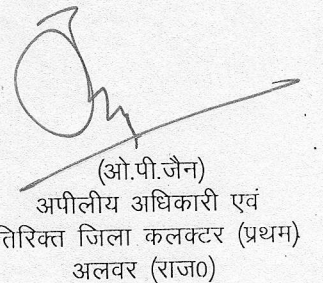 (ओ.पी.जैन)
अपीलीय अधिकारी एवं
तिरिक्त जिला कलक्टर (प्रथम)
अलवर (राज0)